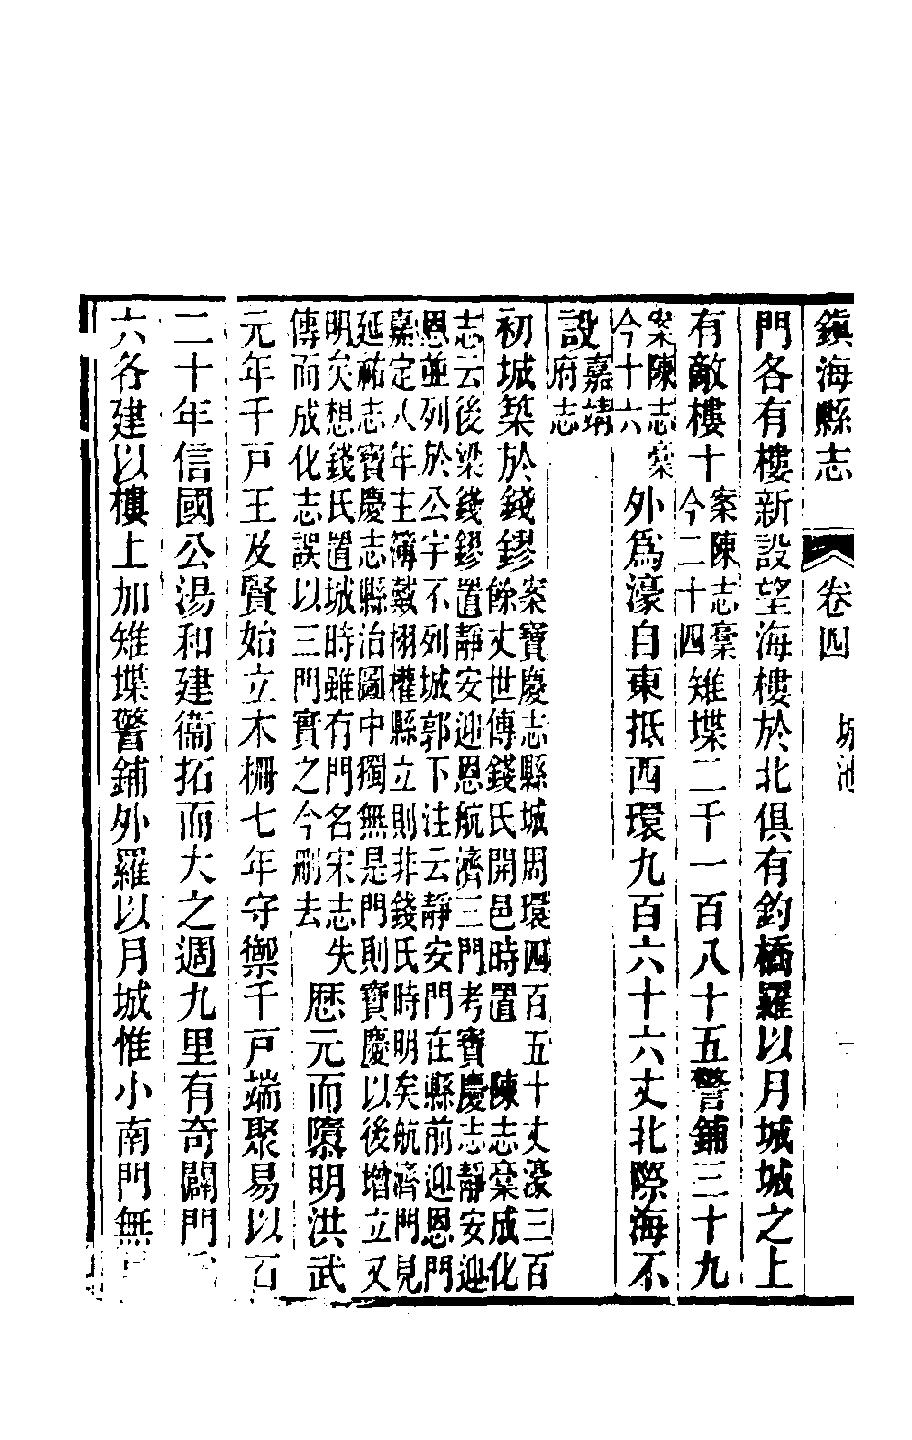 鎮海縣志 卷四 城池 一
門各有樓新設望海樓於北俱有釣橋羅以月城城之上
有敵樓十
案陳志稾
今二十四
雉堞二千一百八十五警鋪三十九
案陳志稾
今十六
外爲濠自東抵西環九百六十六丈北際海不
設
嘉靖
府志
初城築於錢鏐
案寶慶志縣城周環四百五十丈濠三百
餘丈世傳錢氏開邑時置 陳志稾成化
志云後梁錢鏐置靜安迎恩航濟三門考寶慶志靜安迎
恩並列於公宇不列城郭下注云靜安門在縣前迎恩門
嘉定八年主簿戴栩權縣立則非錢氏時明矣航濟門見
延祐志寶慶志縣治圖中獨無是門則寶慶以後增立又
明矣想錢氏置城時雖有門名宋志失
傳而成化志誤以三門實之今刪去
厯元而隳明洪武
元年千戸王及賢始立木柵七年守禦千戸端聚易以石
二十年信國公湯和建衞拓而大之週九里有奇闢門
六各建以樓上加雉堞警鋪外羅以月城惟小南門無